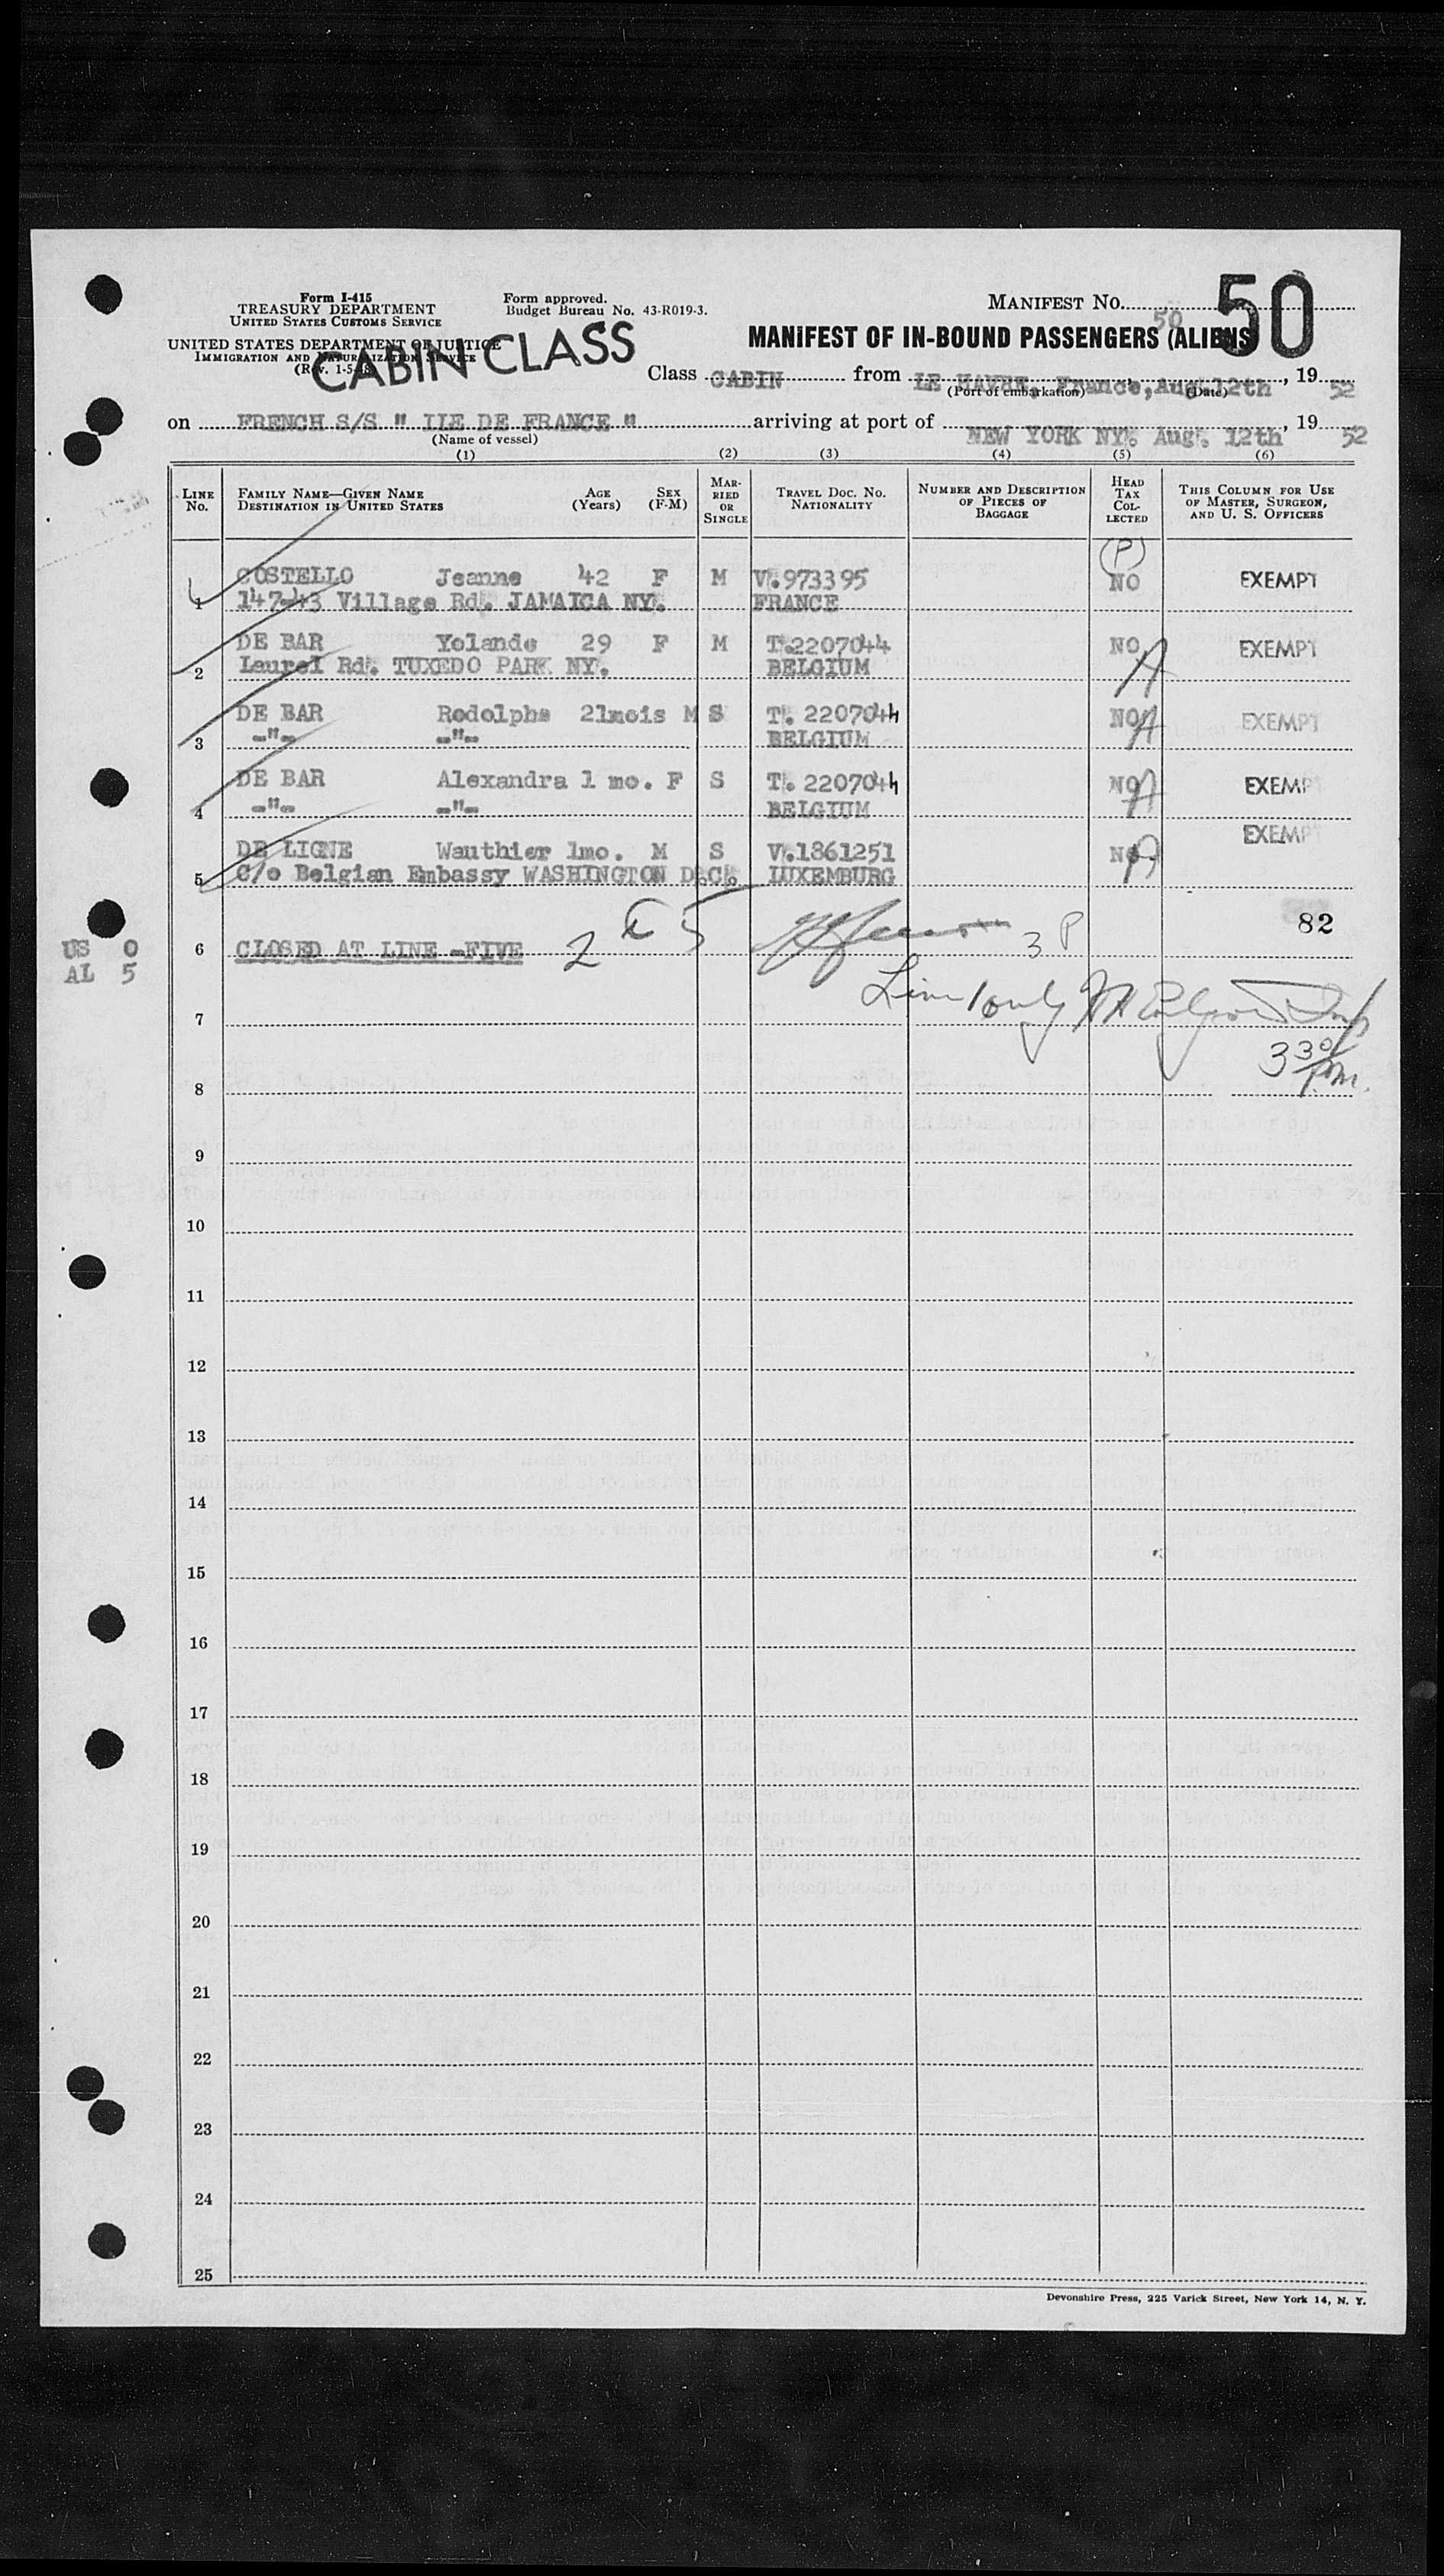 Form I-415
TREASURY DEPARTMENT
UNITED STATES CUSTOMS SERVICE
UNITED STATES DEPARTMENT OF JUSTICE
IMMIGRATION AND NATURALIZATION SERVICE
(Rev. 1-5-48)
CABIN CLASS
Form approved.
Budget Bureau No. 43-R019-3.
MANIFEST NO. 50
50
MANIFEST OF IN-BOUND PASSENGERS (ALIENS)
Class CABIN from LE HAVRE, France, Aug. 12th, 19 52
(Port of embarkation) (Date)
on FRENCH S/S " ILE DE FRANCE " arriving at port of NEW YORK NY. Aug. 12th, 19 52
(Name of vessel)
(1) (2) (3) (4) (5) (6)
LINE NO. FAMILY NAME—GIVEN NAME DESTINATION IN UNITED STATES AGE (Years) SEX (F-M) MARRIED OR SINGLE TRAVEL DOC. NO. NATIONALITY NUMBER AND DESCRIPTION OF PIECES OF BAGGAGE HEAD TAX COLLECTED THIS COLUMN FOR USE OF MASTER, SURGEON, AND U. S. OFFICERS
(P)
COSTELLO Jeanne 42 F M V.973395 NO EXEMPT
1 147-43 Village Rd. JAMAICA NY. FRANCE
DE BAR Yolande 29 F M T.2207044 NO A EXEMPT
2 Laurel Rd. TUXEDO PARK NY. BELGIUM
DE BAR Rodolphe 21mois M S T. 2207044 NO A EXEMPT
3 -"- -"- BELGIUM
DE BAR Alexandra 1 mo. F S T. 2207044 NO A EXEMPT
4 -"- -"- BELGIUM
DE LIGNE Wauthier 1mo. M S V.1861251 NO A EXEMPT
5 C/o Belgian Embassy WASHINGTON D.C. LUXEMBURG
82
US 0
AL 5
6 CLOSED AT LINE -FIVE 2 5 3 P
Line 1 only
7
3 30 P.m.
8
9
10
11
12
13
14
15
16
17
18
19
20
21
22
23
24
25
Devonshire Press, 225 Varick Street, New York 14, N. Y.